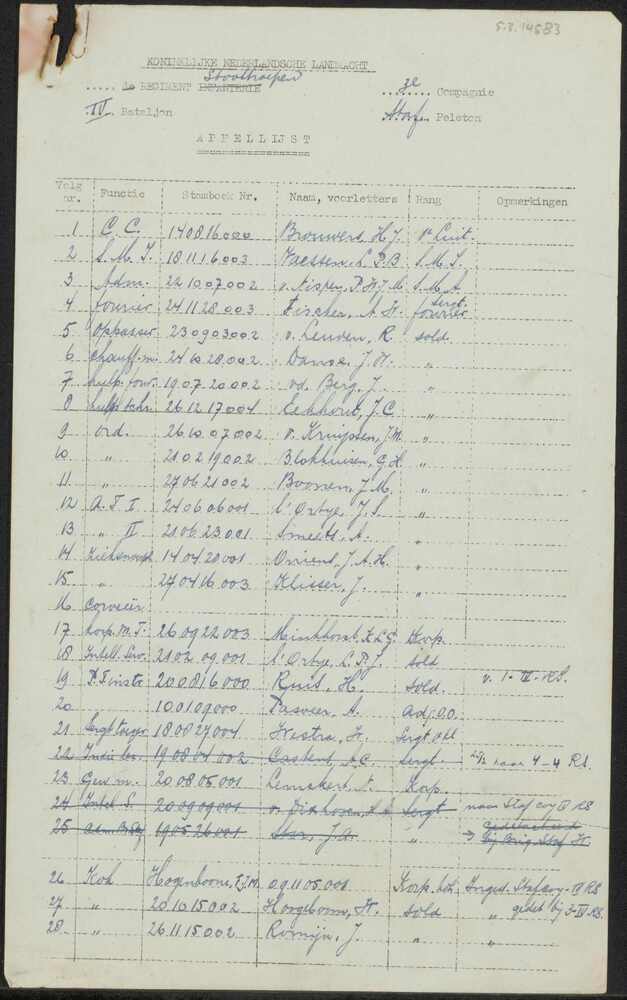 5.3.14583
KONINKLIJKE NEDERLANDSCHE LANDMACHT
..... de REGIMENT INFANTERIE Stoottroepen
3e Compagnie
IV Bataljon
Staf Peleton
APPELLIJST
Volg nr. Functie Stamboek Nr. Naam, voorletters Rang Opmerkingen
1 C.C. 140816000 Brouwers, H.J. 1e Luit.
2 S.M.I. 181116003 Vaessen, L.P.B. S.M.I.
3 Adm. 221007002 v. Nispen, P.H.J.M. S.M.A.
4 fourier 241128003 Fischer, A.H. sergt. fourier
5 oppasser 230903002 v. Leuven, R. sold.
6 chauff.m. 241028002 J.H. "
7 hulp four. 190720002 vd. Berg, J. "
8 hulp schr. 261217004 Eekhout, J.C. "
9 ord. 261007002 v. Kruijssen, J.M. "
10 " 210219002 Blokhuisen, G.H. "
11 " 270621002 Boonen, J.M. "
12 A.T. I 240606001 l'Ortye, J.S. "
13 " II 210623001 Smeets, A. "
14 140420001 J.A.H. "
15 " 270416003 Klisser, J. "
16 Corveeër
17 Korp. M.T. 260922003 Minkhorst, Korp.
18 Intell. 210209001 l'Ortye, L.P.J. sold
19 200816000 Ruis, H. sold. v. 1-IV-RS.
20 100109000 Pasveer, A. Adj.O.O.
21 180827004 Westra, H. Sergt
22 190804002 A.C. Sergt. naar 4-4 RS.
23 Gew m. 200805001 Korp.
24 Intel S. 200909001 Sergt naar Staf cy IV RS
25 190526001 Star, J.A. " gedetacheerd
→ bij Brig. Staf
26 Kok Hogenboone, F.J.M. 091105001 Korp. kok Inged. Stafcoy-IV RS
27 " 201015002 Hoogeboom, H. sold " gedet bij 3-IV RS.
28 " 261115002 Romijn, J. " "